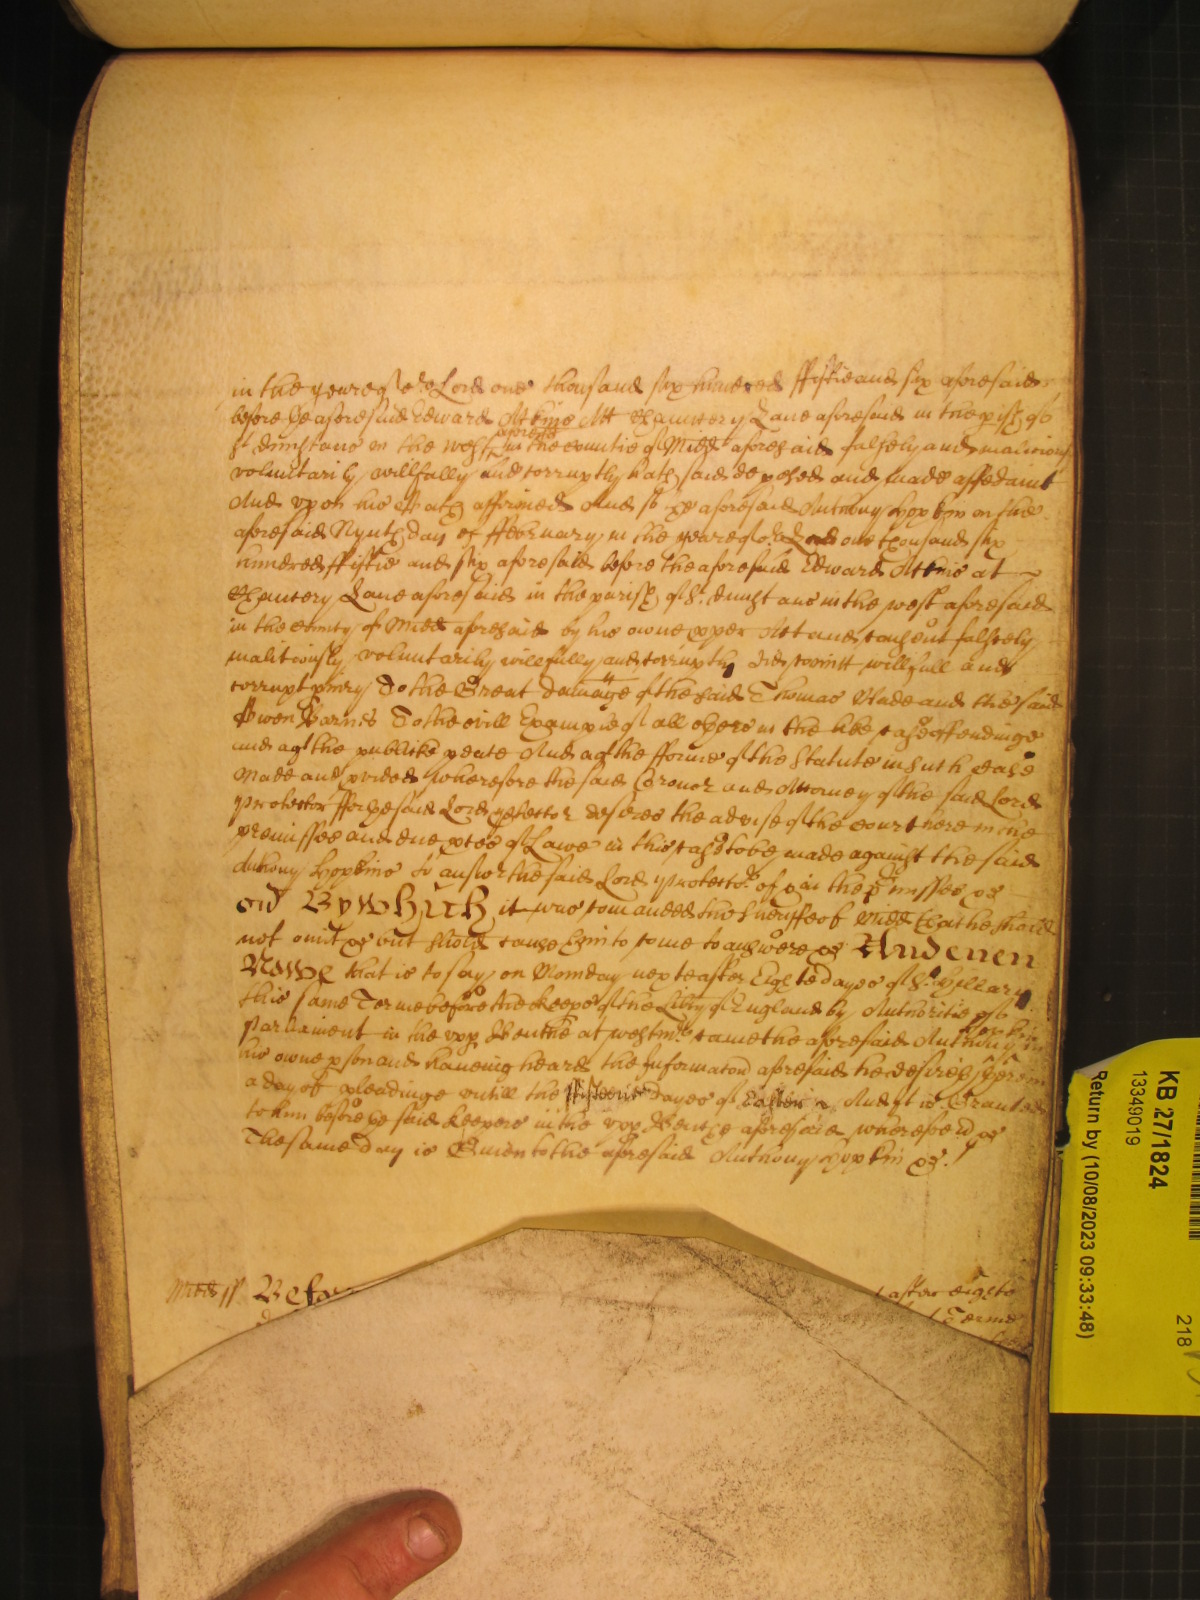 in the yeare of or Lord one thousand six hundred ffiftie and six aforesaid
before ye aforesaid Edward Atkins Att Chauncery Lane aforesaid in the pish of
St Dunstans in the West aforesaid in the countie of Midd aforesaid falsely and malitiously
voluntarily willfully and corruptly hath said deposed and made affedavit
And upon his oath affirmed And so ye aforesaid Anthony Hopkin on the
aforesaid Nynth day of ffebruary in the yeare of or Lord one thousand six
hundred ffiftie and six aforesaid before the aforesaid Edward Atkins at
Chauncery Lane aforesaid in the parish of St Dunstans in the west aforesaid
in the county of Midd aforesaid by his owne pper Act and consent falsely
malitiously voluntarily willfully and corruptly did comitt willfull and
corrupt piury To the Great damage of the said Thomas Wade and the said
Owen Barnes To the evill Example of all others in the like case offendinge
and agt the publike peace And agt the fforme of the Statute in such case
made and pvided Wherefore the said Coroner and Attorney of the said Lord
Protector ffor ye said Lord ptector desires the advise of the court here in the
premisses and due pces of Lawe in this case to be made against the said
Anthony Hopkins to answr the said Lord Protector of & in the pmisses &c
By Which it was comanded the Sheriffe of Midd that he should
not omit &c but should cause him to come to answere &c And now
that is to say on Monday next after Eight dayes of St Hillary
this same Terme before the Keepers of the Liberty of England by Authoritie of
Parliament in the upp Bench at westmr came the aforesaid Anthony Hopkin in
his owne pson and haveing heard the Informacon aforesaid he desires
a day of pleadinge untill the fifteene dayes of Easter And it is Graunted
to him before ye said Keepers in the upp Bench aforesaid wheresoe &c
The same day is Given to the aforesaid Anthony Hopkin &c
Midd ss Befor
after eight
Terme
KB 27/1824
13349019
Return by (10/08/2023 09:33:48)
218